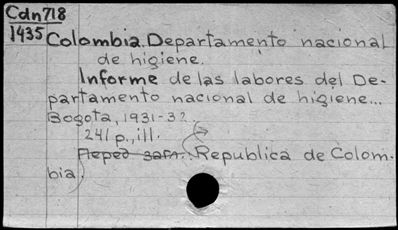 Cdn718
1435
Colombia. Departamento nacional
de higiene.
Informe de las labores del De-
partamento nacional de higiene...
Bogota, 1931-32.
241 p., ill.
Republica de Colom-
bia.